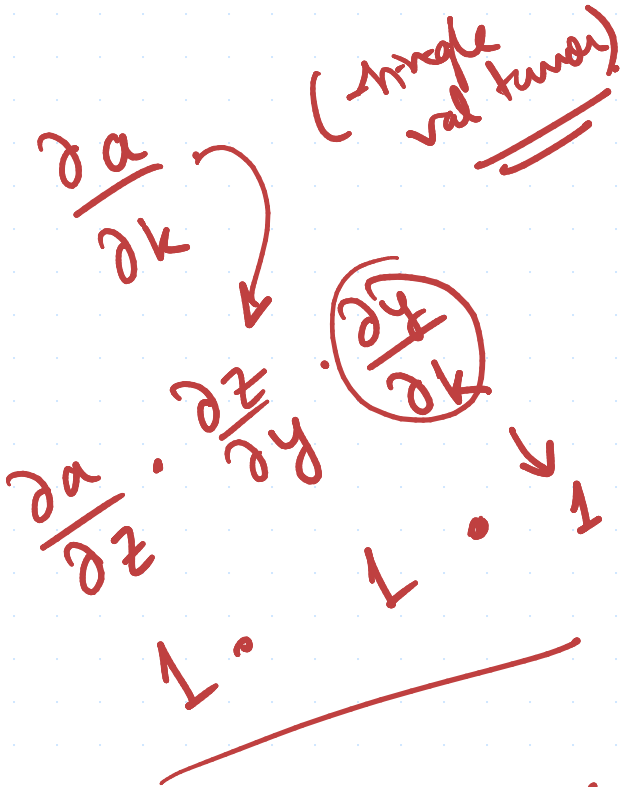 (single
val tensor)
∂a/∂k
∂a/∂z · ∂z/∂y · ∂y/∂k
1 · 1 · 1